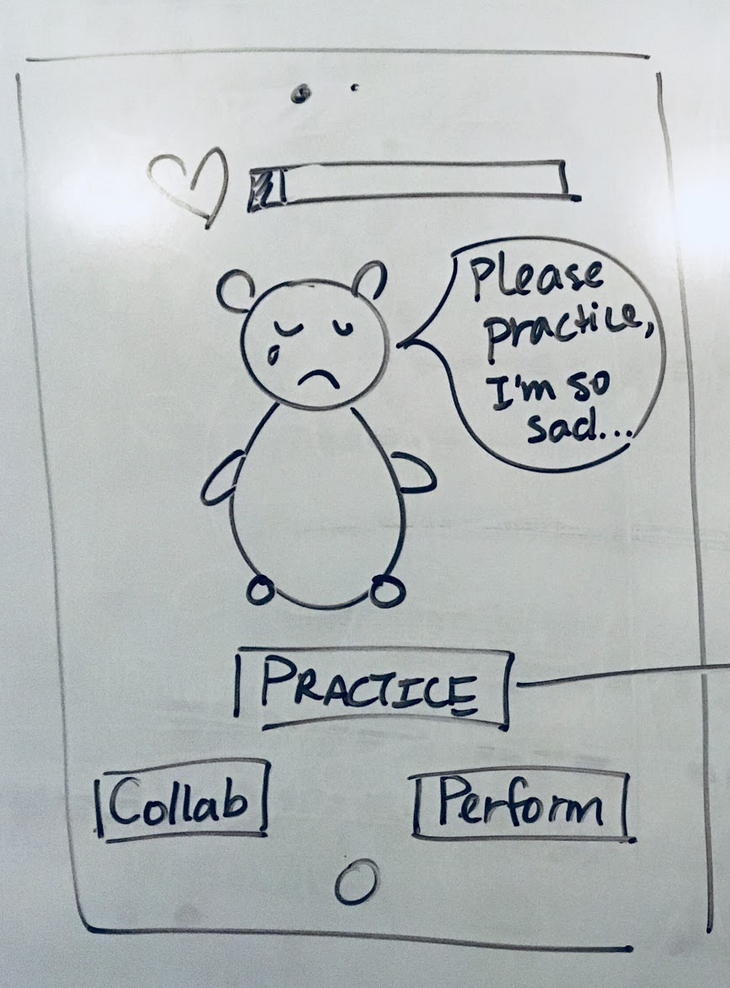 Please
practice,
I'm so
sad...
PRACTICE
Collab
Perform